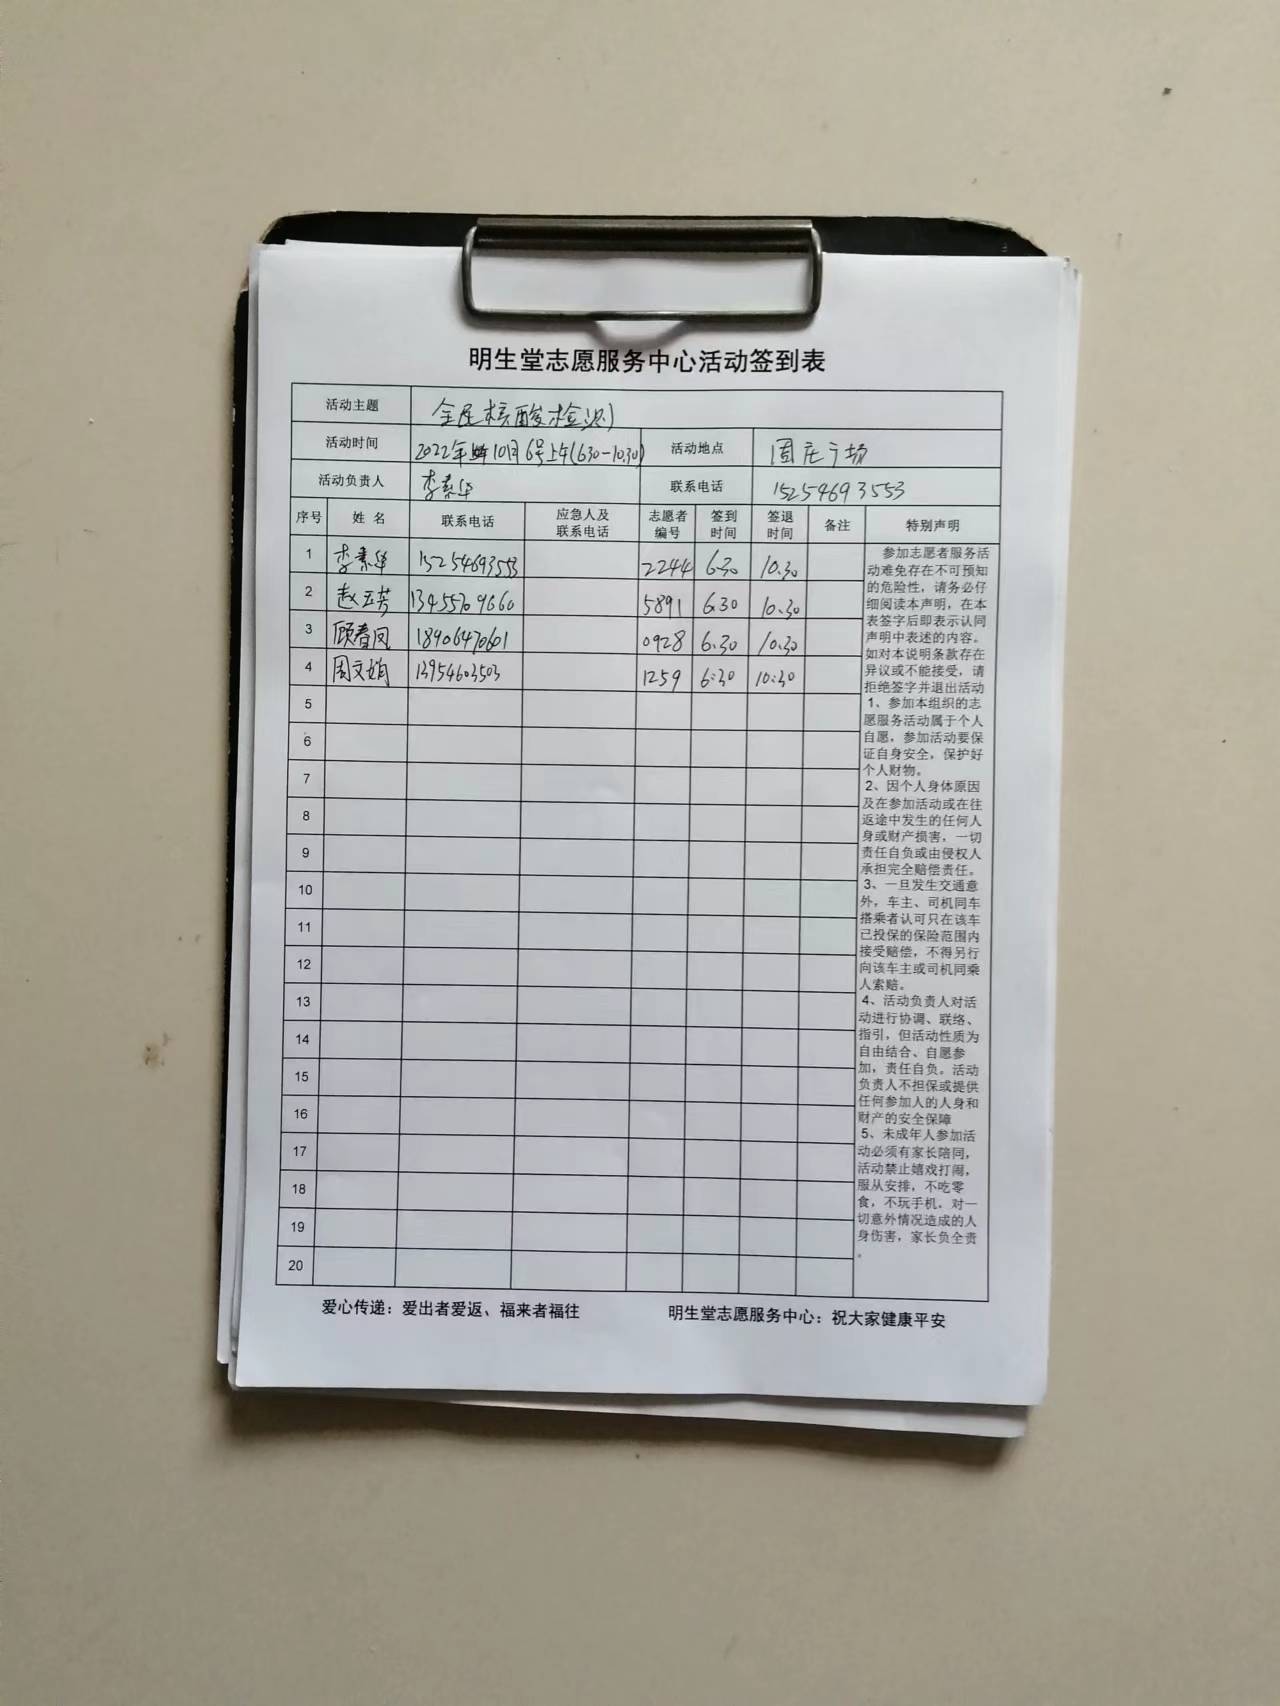 明生堂志愿服务中心活动签到表
活动主题 全民核酸检测
活动时间 2022年 10月6号上午(6:30-10:30) 活动地点 周庄广场
活动负责人 李素华 联系电话 15254693553
序号 姓名 联系电话 应急人及联系电话 志愿者编号 签到时间 签退时间 备注 特别声明
1 李素华 15254693553 2244 6:30 10:30
2 赵玉芳 13455709660 5891 6:30 10:30
3 顾春凤 18906470601 0928 6:30 10:30
4 周文娟 13954603503 1259 6:30 10:30
5
6
7
8
9
10
11
12
13
14
15
16
17
18
19
20
参加志愿者服务活
动难免存在不可预知
的危险性，请务必仔
细阅读本声明，在本
表签字后即表示认同
声明中表述的内容。
如对本说明条款存在
异议或不能接受，请
拒绝签字并退出活动
1、参加本组织的志
愿服务活动属于个人
自愿，参加活动要保
证自身安全，保护好
个人财物。
2、因个人身体原因
及在参加活动或在往
返途中发生的任何人
身或财产损害，一切
责任自负或由侵权人
承担完全赔偿责任。
3、一旦发生交通意
外，车主、司机同车
搭乘者认可只在该车
已投保的保险范围内
接受赔偿，不得另行
向该车主或司机同乘
人索赔。
4、活动负责人对活
动进行协调、联络、
指引，但活动性质为
自由结合、自愿参
加，责任自负。活动
负责人不担保或提供
任何参加人的人身和
财产的安全保障
5、未成年人参加活
动必须有家长陪同，
活动禁止嬉戏打闹，
服从安排，不吃零
食，不玩手机，对一
切意外情况造成的人
身伤害，家长负全责
。
爱心传递：爱出者爱返、福来者福往 明生堂志愿服务中心：祝大家健康平安